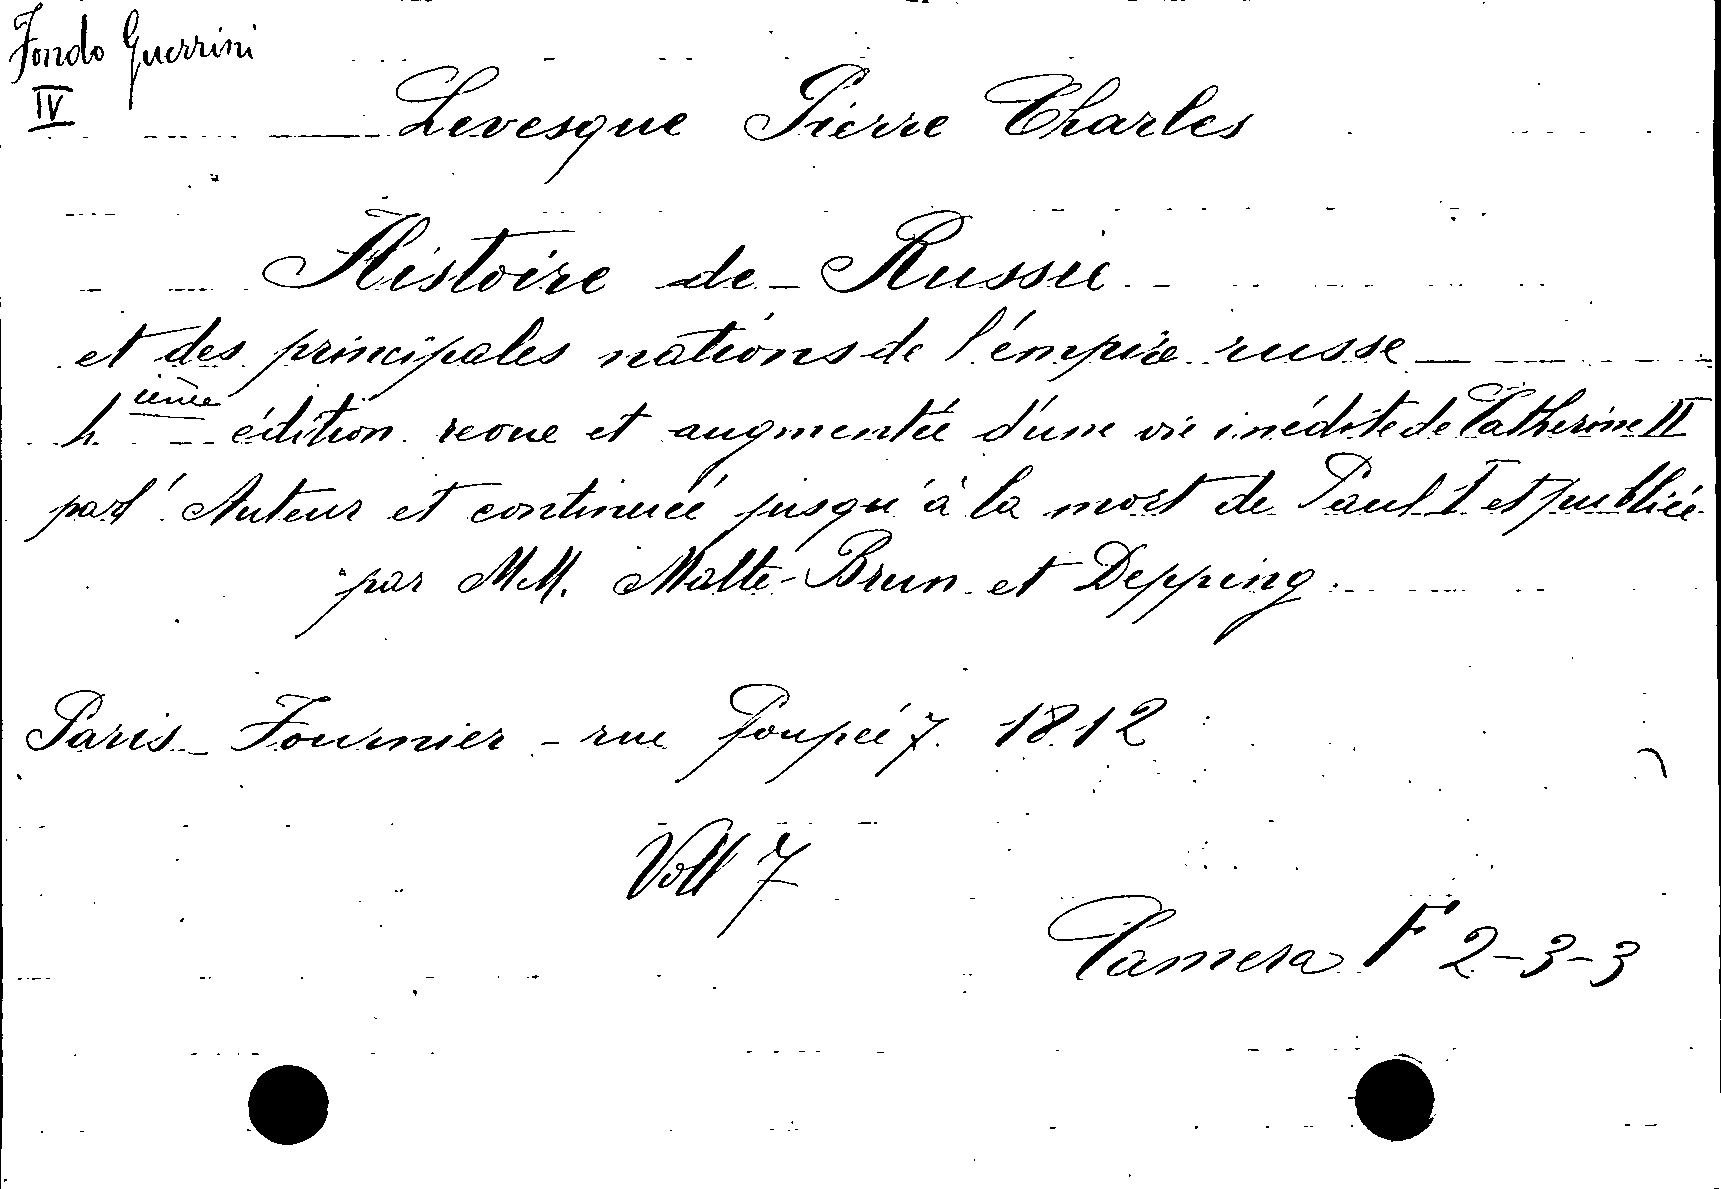 Fondo Guerrini
IV
Levesque Pierre Charles
Histoire de Russie
et des principales nations de l'émpire russe
4ième édition revue et augmentée d'une vie inédite de Catherine II
par l'Auteur et continueé jusqu'à la mort de Paul I et publiée
par MM. Malte-Brun et Depping.
Paris - Fournier - rue Poupeé 7. 1812
Voll 7
Camera F 2-3-3